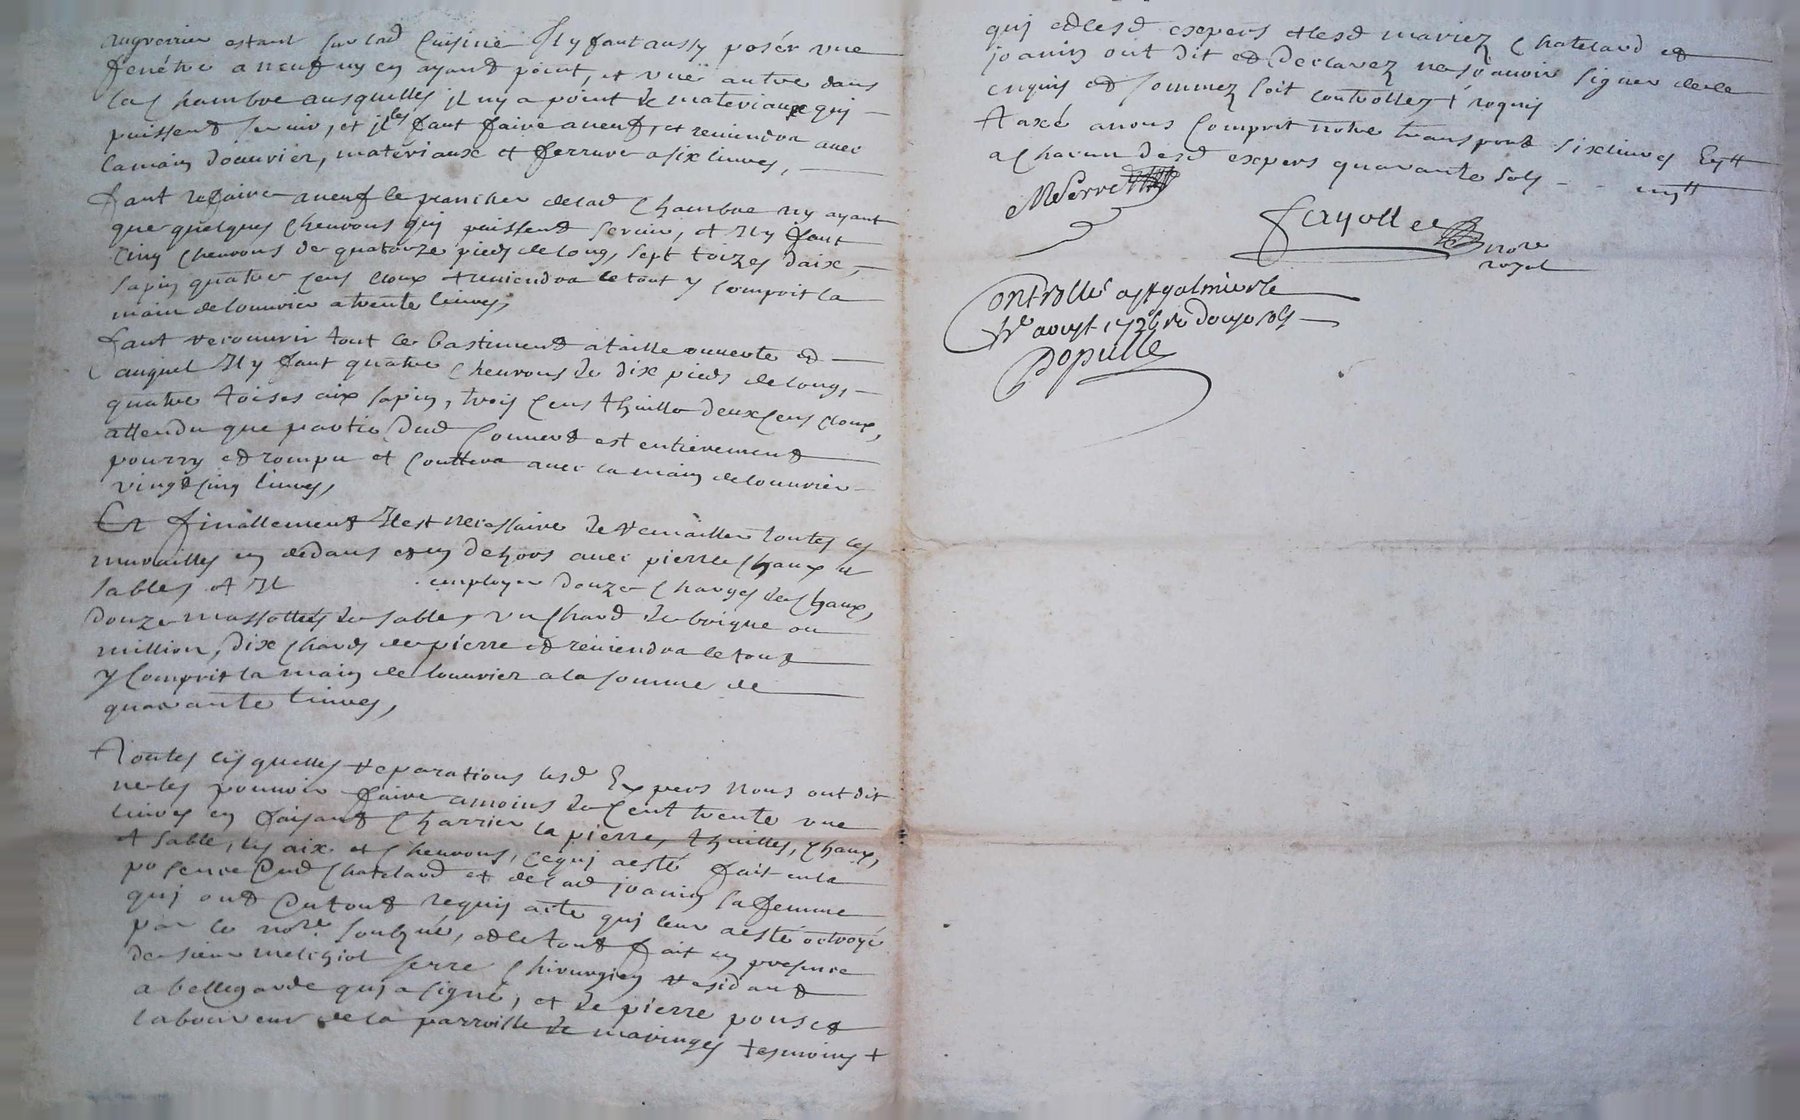 estant sur lad Cuisine Il y faut aussy poser une
fenétre a neuf ny en ayand point, et une autre dans
lad chambre ausquelles il ny a point de materiaux qui
puissend servir, et il faut faire a neuf, et reviendra avec
la main doeuvrier, materiaux et ferrure a six livres,
faut refaire a neuf le plancher de lad chambre ny ayant
que quelques cheurons qui puissend servir, et Il y faut
cinq cheurons de quatorze pieds de long, sept toizes daix,
sapin quatre cens cloux et reviendra le tout y comprit la
main de louvrier a trente livres,
faut recouvrir tout le bastimend a taille ouverte et
auquel Il y faut quatre cheurons de dix pieds de long,
quatre toises aix sapin, trois cens thuille deux cens cloux,
attendu que partie dud couverd est entieremend
pourry et rompu et couttera avec la main de louvrier
vingt cinq livres,
Et finallemend Il est necessaire de remailler toutes les
murailles en dedans et en dehors avec pierre chaux et
sables et Il employer douze charges de chaux,
douze massottes de sable, un chard de brique ou
million, dix chards de pierre et reviendra le tout
y comprit la main de louvrier a la somme de
quarante livres,
Toutes lesquelles reparations lesd Expers nous ont dit
ne les pouvoir faire a moins de cent trente une
livres en faisand charrier la pierre, thuilles, chaux,
et sable, les aix et cheurons, ce qui a esté fait en la
presence dud Chatelard et de lad joanin sa femme
qui ont du tout requis acte qui leur a esté octroyé
par le nore soubzné, et le tout fait en presence
de sieur melchiol serre chirurgien residand
a bellegarde qui a signé, et de pierre ponsed
laboureur de la parroisse de maringes tesmoins +
qui et lesd expers et lesd mariez Chatelard et
joanin ont dit et declarez ne sçavoir signer de ce
enquis et sommez soit controllez + requis
Taxé a nous comprit notre transport six livres
a chacun desd expers quarante sols
MSerre
fayolle
nore
royal
Controllé a St galmier le
aoust 1726
Dopulle